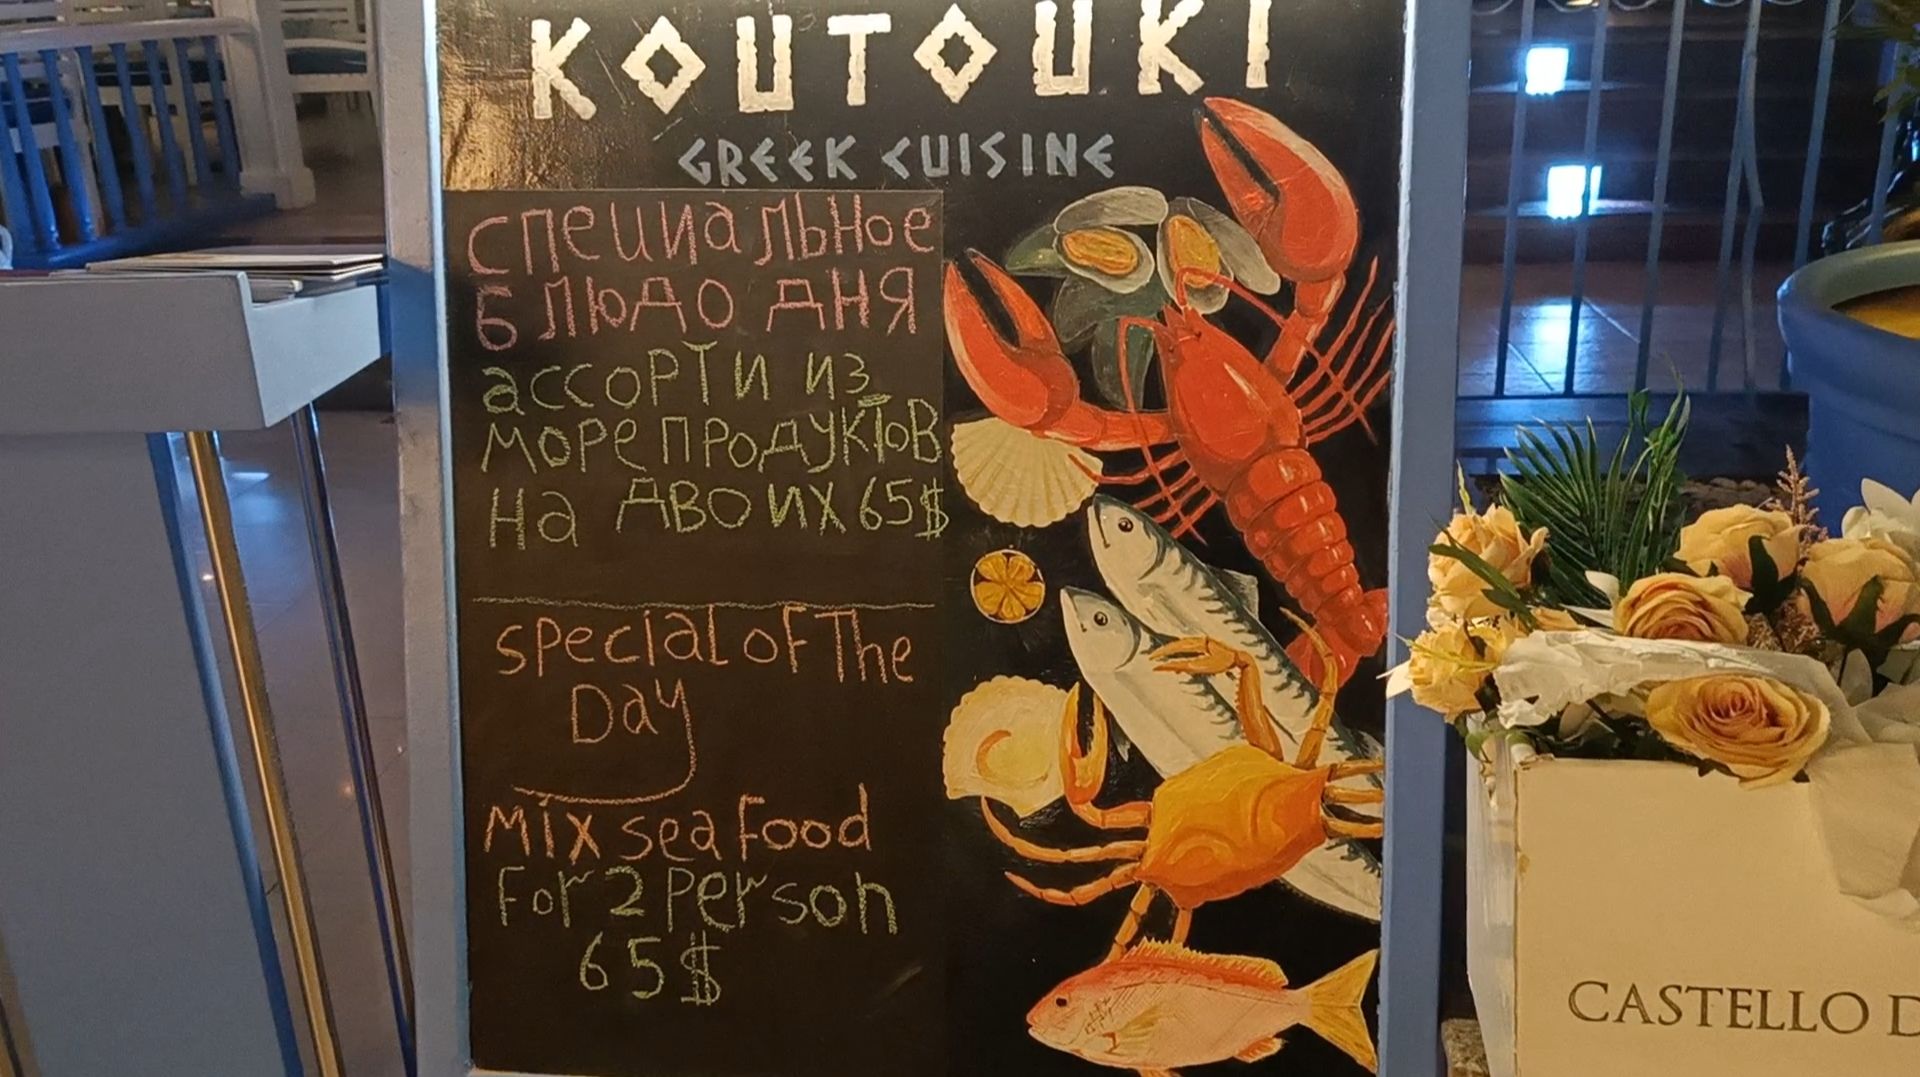 KOUTOUKI
GREEK CUISINE
специальное
блюдо дня
ассорти из
морепродуктов
на двоих 65$
special of The
Day
Mix sea food
For 2 person
65$
CASTELLO D